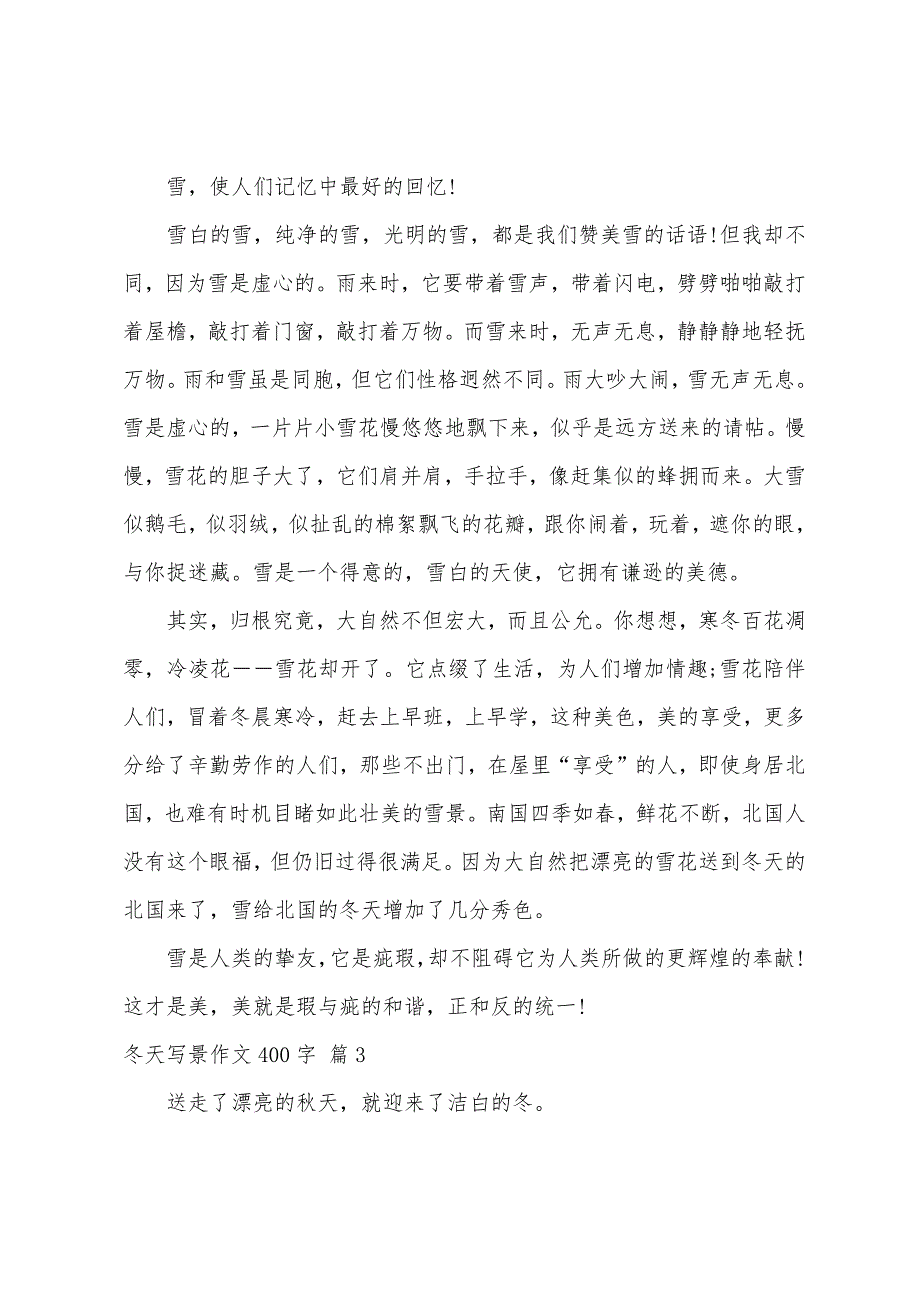 雪，使人们记忆中最好的回忆!
雪白的雪，纯净的雪，光明的雪，都是我们赞美雪的话语!但我却不
同，因为雪是虚心的。雨来时，它要带着雪声，带着闪电，劈劈啪啪敲打
着屋檐，敲打着门窗，敲打着万物。而雪来时，无声无息，静静静地轻抚
万物。雨和雪虽是同胞，但它们性格迥然不同。雨大吵大闹，雪无声无息。
雪是虚心的，一片片小雪花慢悠悠地飘下来，似乎是远方送来的请帖。慢
慢，雪花的胆子大了，它们肩并肩，手拉手，像赶集似的蜂拥而来。大雪
似鹅毛，似羽绒，似扯乱的棉絮飘飞的花瓣，跟你闹着，玩着，遮你的眼，
与你捉迷藏。雪是一个得意的，雪白的天使，它拥有谦逊的美德。
其实，归根究竟，大自然不但宏大，而且公允。你想想，寒冬百花凋
零，冷凌花－－雪花却开了。它点缀了生活，为人们增加情趣;雪花陪伴
人们，冒着冬晨寒冷，赶去上早班，上早学，这种美色，美的享受，更多
分给了辛勤劳作的人们，那些不出门，在屋里“享受”的人，即使身居北
国，也难有时机目睹如此壮美的雪景。南国四季如春，鲜花不断，北国人
没有这个眼福，但仍旧过得很满足。因为大自然把漂亮的雪花送到冬天的
北国来了，雪给北国的冬天增加了几分秀色。
雪是人类的挚友，它是疵瑕，却不阻碍它为人类所做的更辉煌的奉献!
这才是美，美就是瑕与疵的和谐，正和反的统一!
冬天写景作文 400 字 篇 3
送走了漂亮的秋天，就迎来了洁白的冬。